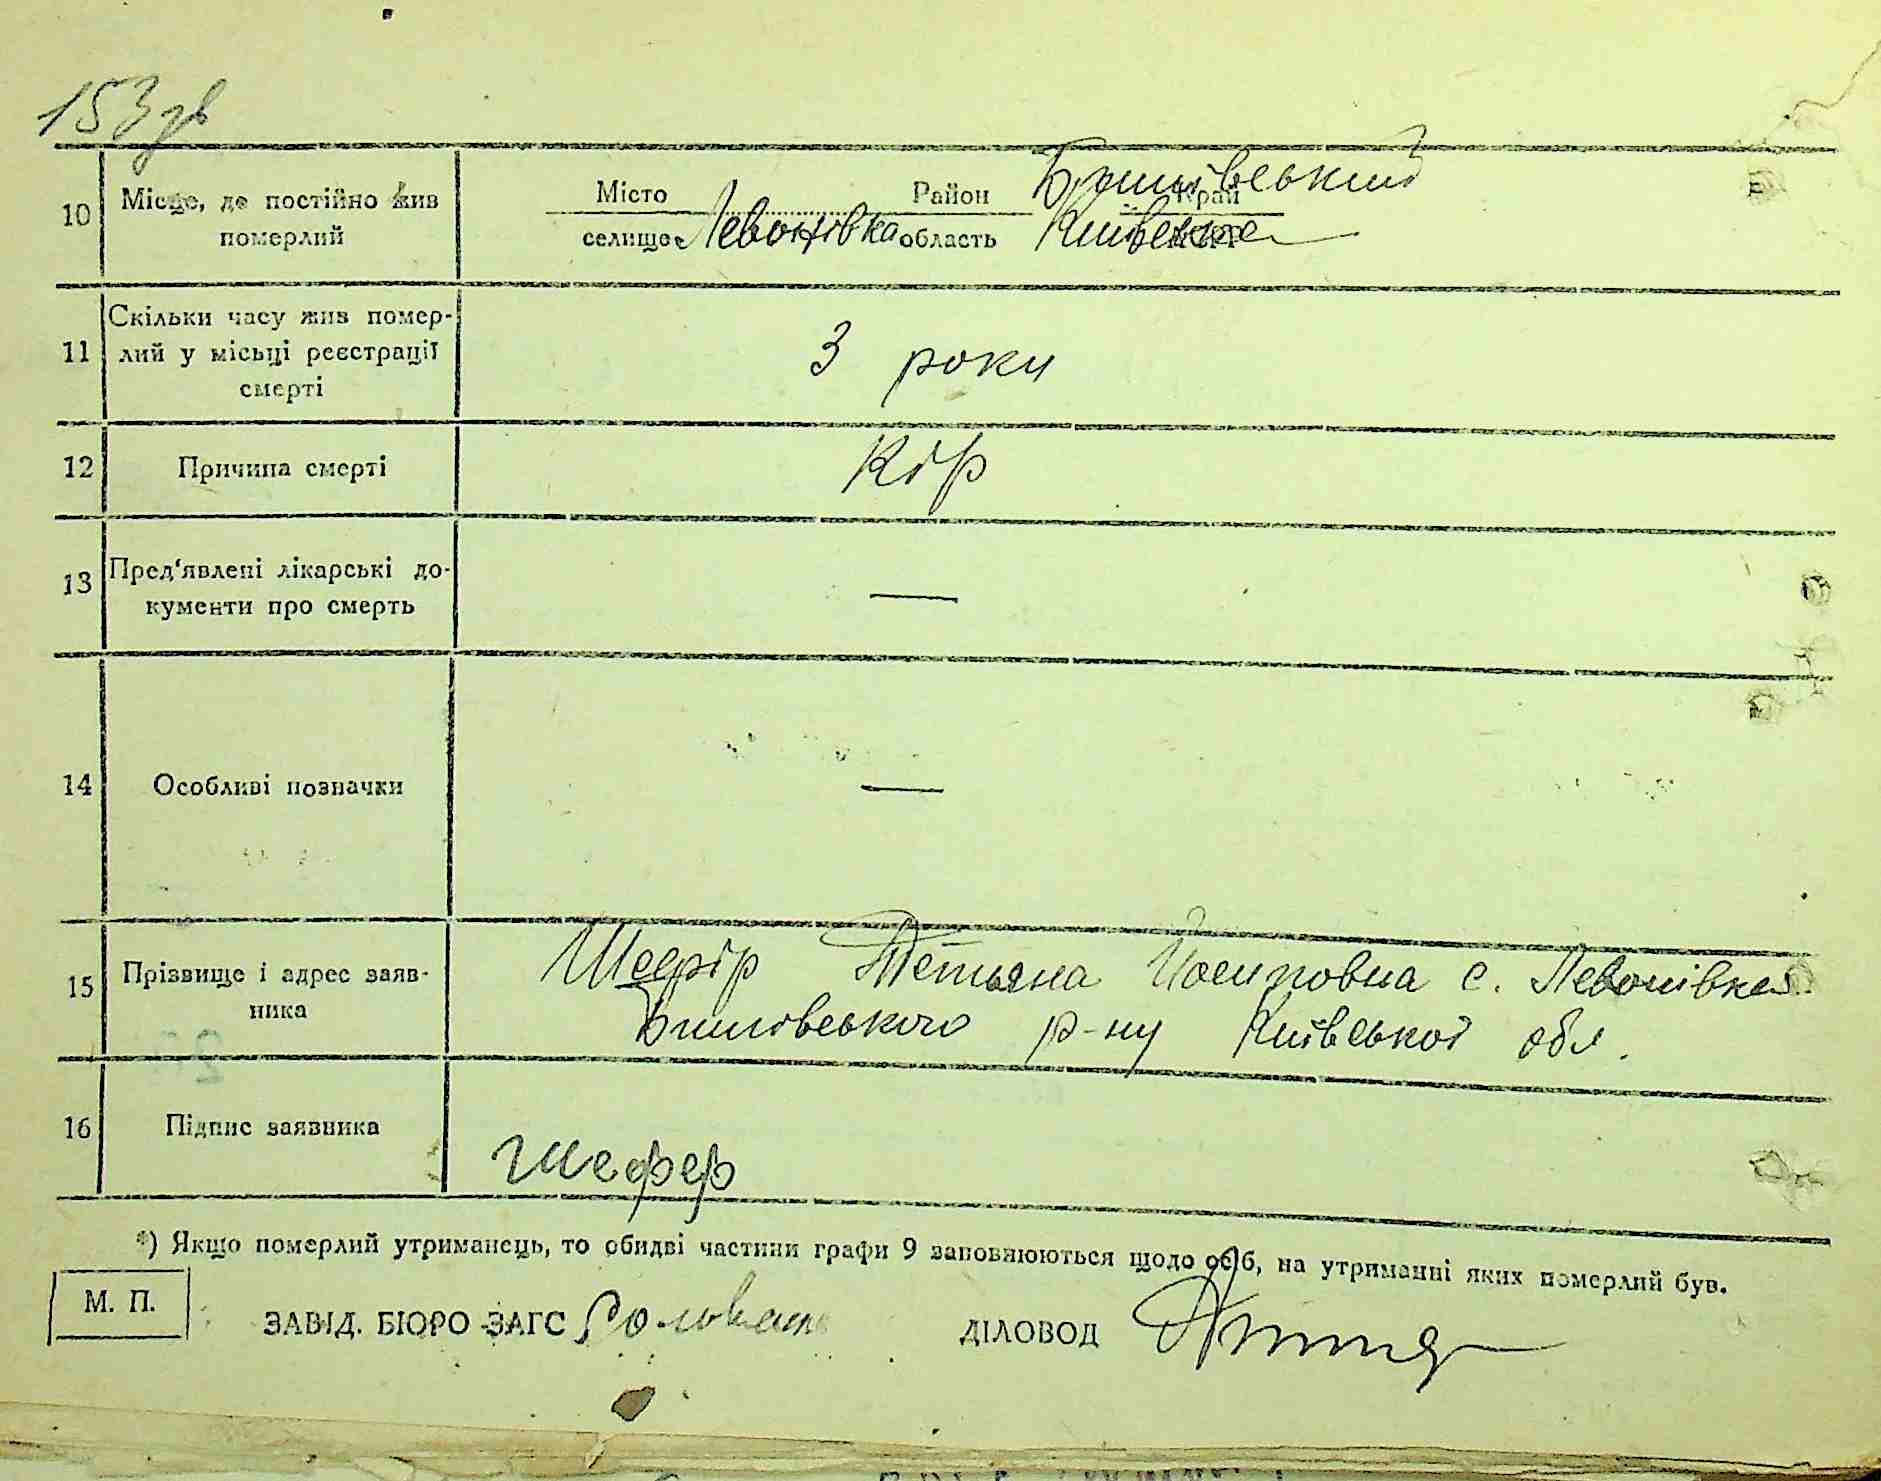 153 зв
10 Місце, де постійно жив померлий
Місто Район Бишівський Край
селище Левонівка область Київська АСРР
11 Скільки часу жив помер-
лий у місьці реєстрації
смерті
3 роки
12 Причина смерті Кір
13 Пред'явлені лікарські до-
кументи про смерть —
14 Особливі позначки —
15 Прізвище і адрес заяв-
ника
Шефір Тетьяна Йосиповна с. Левонівка
Бишівського р-ну Київської обл.
16 Підпис заявника
Шефер
*) Якщо померлий утриманець, то обидві частини графи 9 заповнюються щодо осіб, на утриманні яких померлий був.
М. П.
ЗАВІД. БЮРО ЗАГС ДІЛОВОД